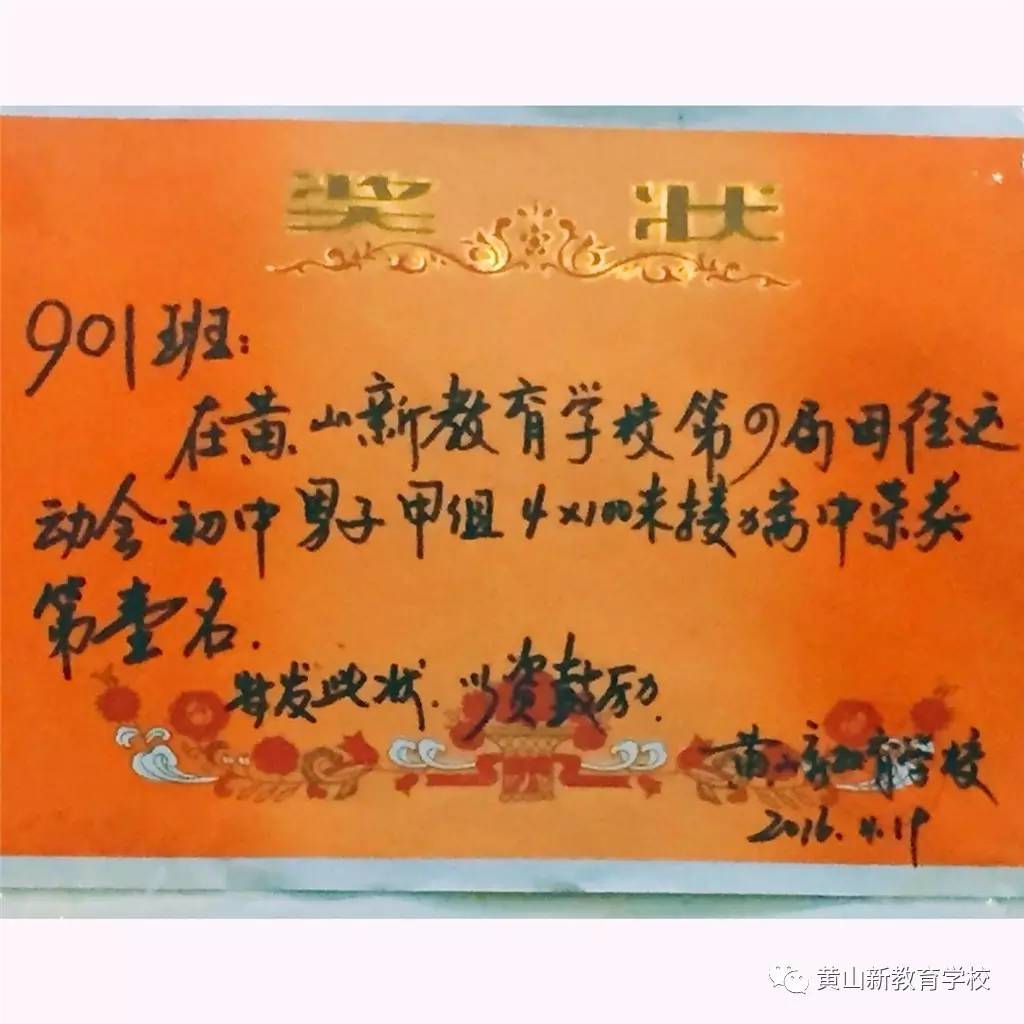 奖 状
901班:
在黄山新教育学校第9届田径运
动会初中男子甲组4×100米接力赛中荣获
第壹名.
特发此状.以资鼓励.
黄山新教育学校
2016.4.19
黄山新教育学校